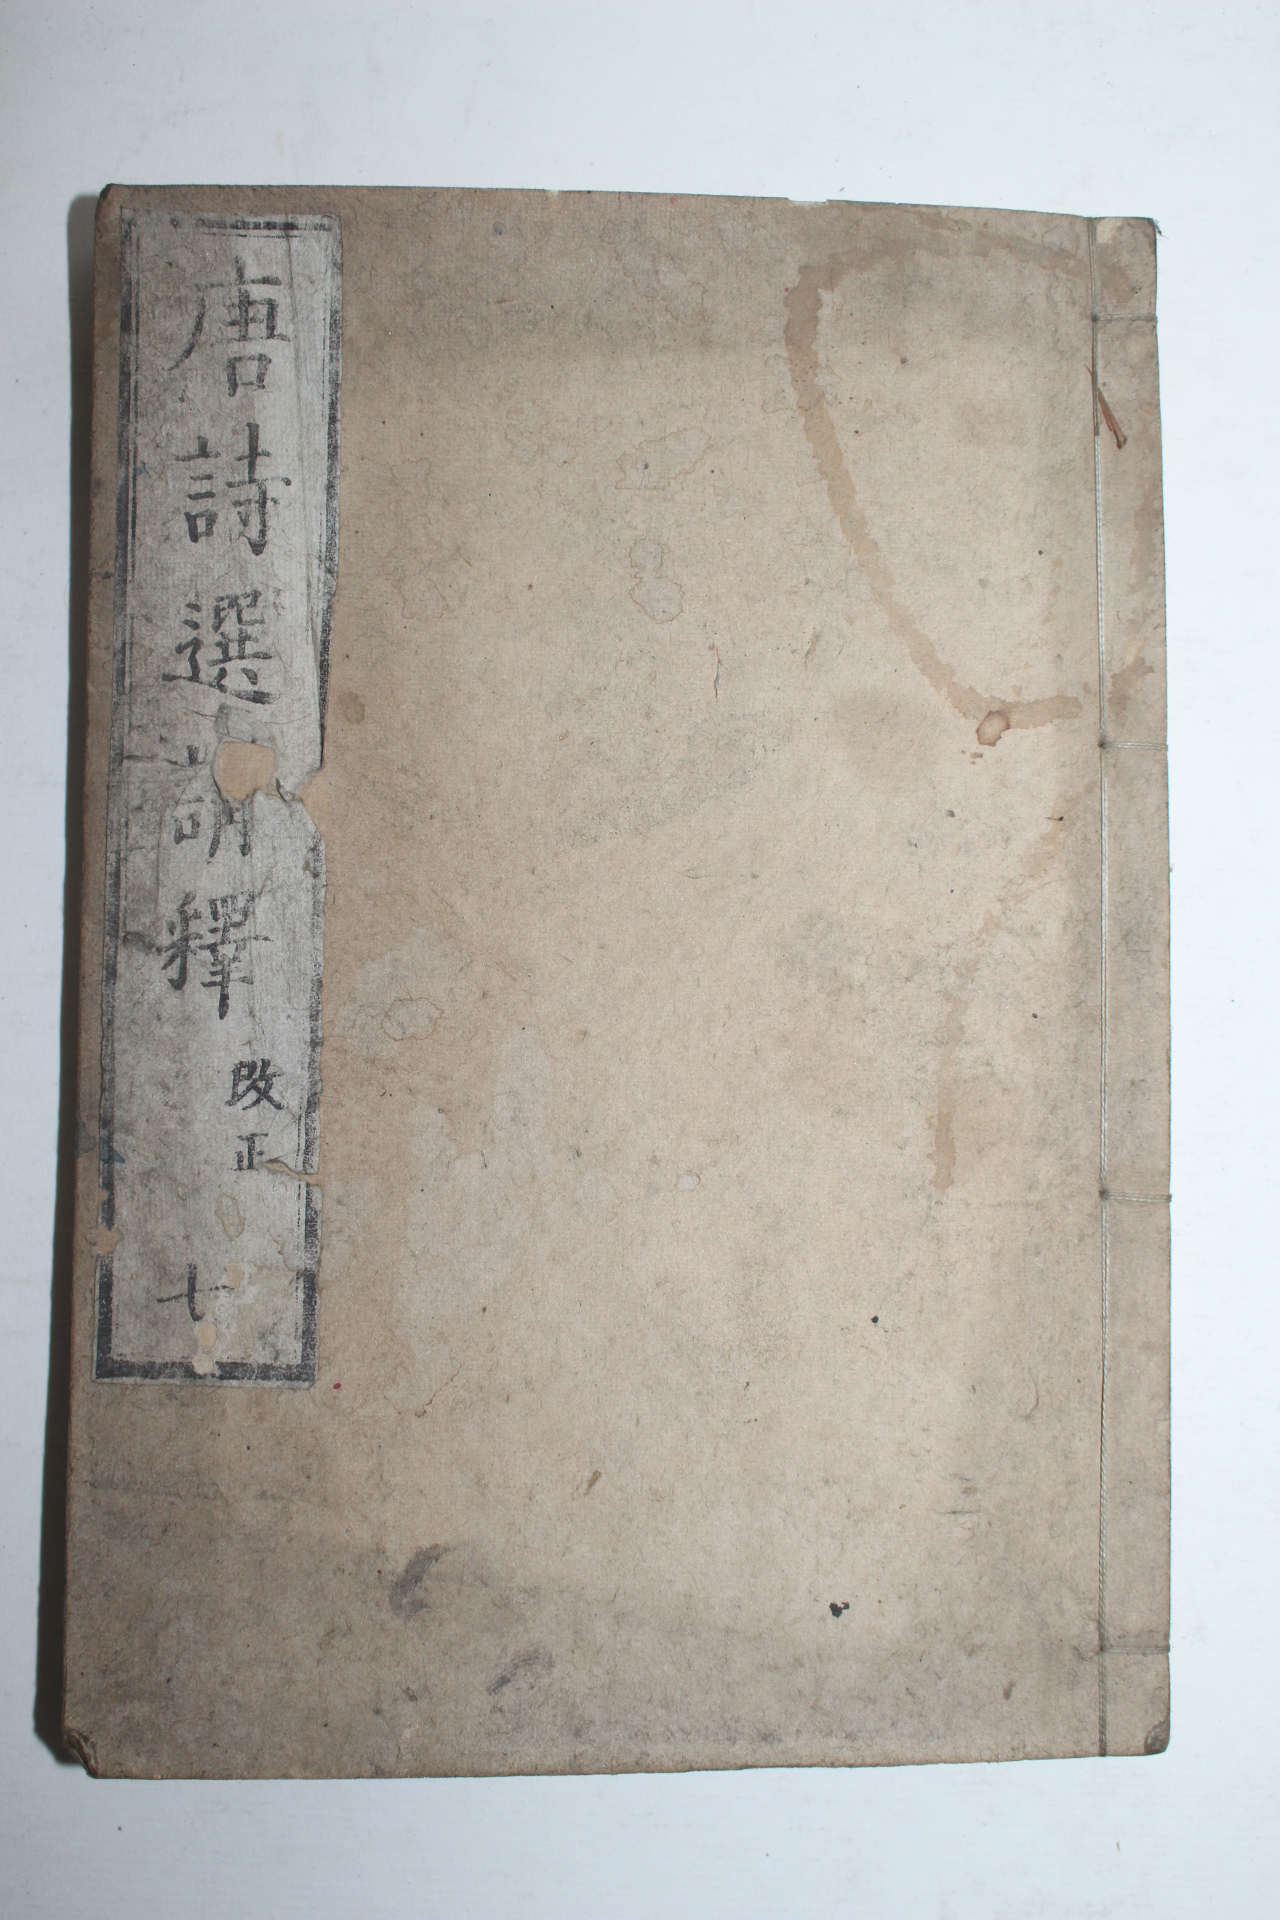 唐詩選講釋
改正
七